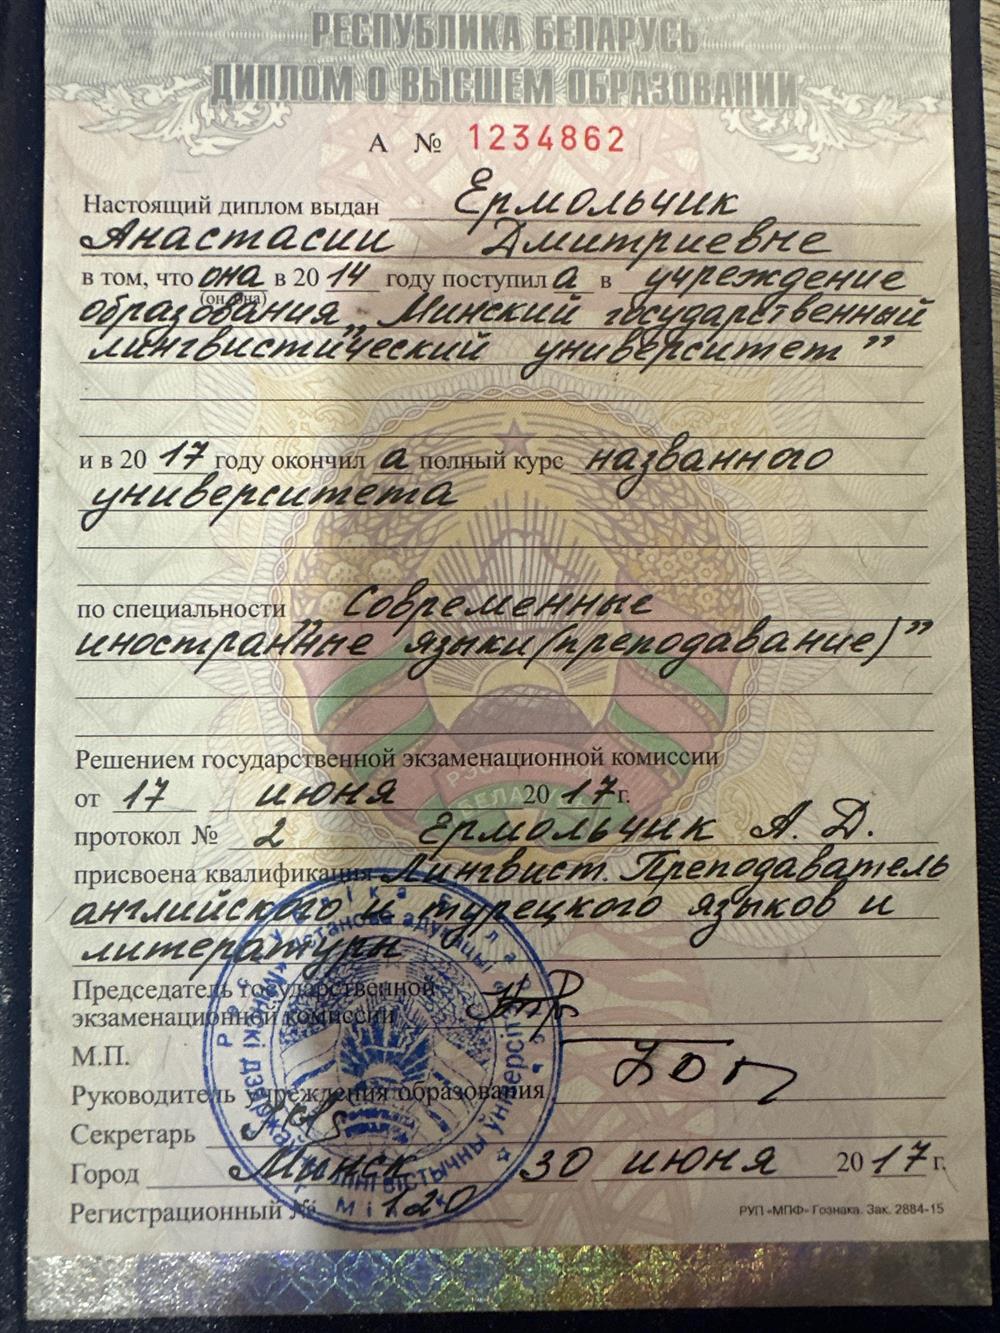 РЕСПУБЛИКА БЕЛАРУСЬ
ДИПЛОМ О ВЫСШЕМ ОБРАЗОВАНИИ
А № 1234862
Настоящий диплом выдан Ермольчик
Анастасии Дмитриевне
в том, что она в 2014 году поступила в учреждение
(он, она)
образования „Минский государственный
лингвистический университет”
и в 2017 году окончила полный курс названного
университета
по специальности „Современные
иностранные языки (преподавание)”
Решением государственной экзаменационной комиссии
от 17 июня 2017 г.
протокол № 2 Ермольчик А. Д.
присвоена квалификация Лингвист. Преподаватель
английского и турецкого языков и
литературы
Председатель государственной
экзаменационной комиссии
М.П.
Руководитель учреждения образования
Секретарь
Город Минск 30 июня 2017 г.
Регистрационный № 120
РУП «МПФ» Гознака. Зак. 2884-15